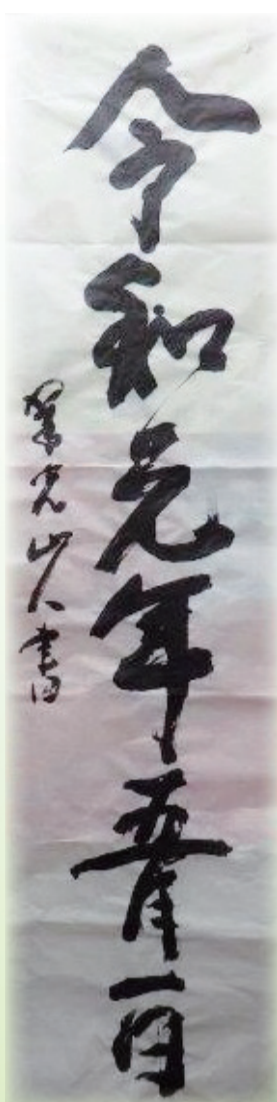 令和元年五月一日
光山人書